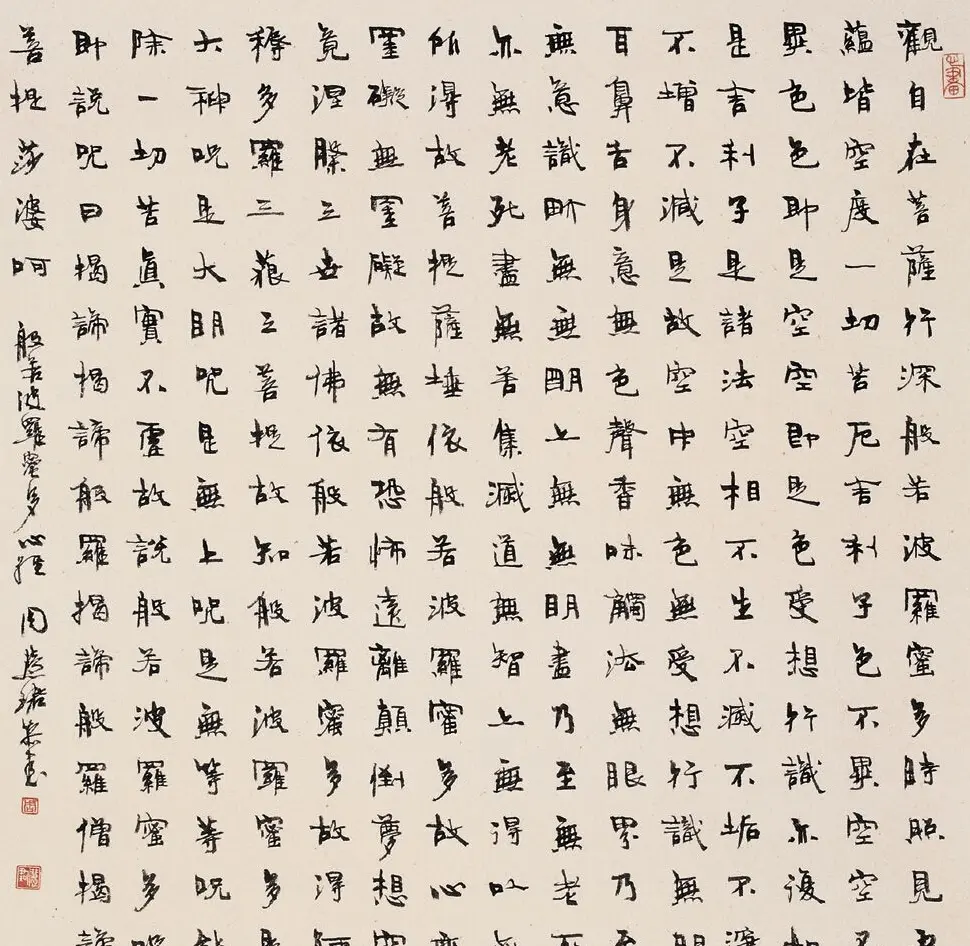 觀自在菩薩行深般若波羅蜜多時照見五
蘊皆空度一切苦厄舍利子色不異空空不
異色色即是空空即是色受想行識亦復如
是舍利子是諸法空相不生不滅不垢不淨
不增不減是故空中無色無受想行識無眼
耳鼻舌身意無色聲香味觸法無眼界乃至
無意識界無無明上無無明盡乃至無老死
亦無老死盡無苦集滅道無智上無得以無
所得故菩提薩埵依般若波羅蜜多故心無
罣礙無罣礙故無有恐怖遠離顛倒夢想究
竟涅槃三世諸佛依般若波羅蜜多故得阿
耨多羅三藐三菩提故知般若波羅蜜多是
大神咒是大明咒是無上咒是無等等咒能
除一切苦真實不虛故說般若波羅蜜多咒
即說咒曰揭諦揭諦般羅揭諦般羅僧揭諦
菩提莎婆呵 般若波羅蜜多心經 周